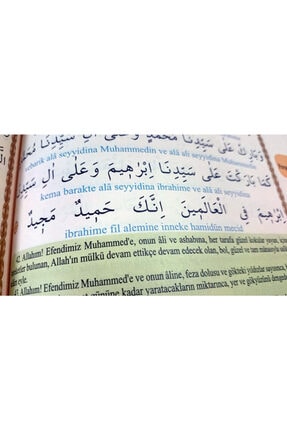 وَبَارِكْ عَلَى سَيِّدِنَا مُحَمَّدٍ وَعَلَى اٰلِ سَيِّدِنَا
vebarik alâ seyyidina Muhammedin ve alâ ali seyyidina Muhammedin
كَمَا بَارَكْتَ عَلَى سَيِّدِنَا اِبْرٰهِيمَ وَعَلَى اٰلِ سَيِّدِنَا
kema barakte alâ seyyidina ibrahime ve alâ ali seyyidina
اِبْرٰهِيمَ فِى الْعَالَمِينَ اِنَّكَ حَمِيدٌ مَجِيدٌ
ibrahime fil alemine inneke hamidün mecid
42. Allahım! Efendimiz Muhammed'e, onun âli ve ashabına, her tarafa güzel kokular yayan,
bulunan, Allah'ın mülkü devam ettikçe devam edecek olan, bol, güzel ve tam manasıyla
eyle.
43. Allahım! Efendimiz Muhammed'e ve onun âline, feza dolusu ve gökteki yıldızlar sayısınca,
gününe kadar yaratacakların miktarınca, yer ve gökyüzünü